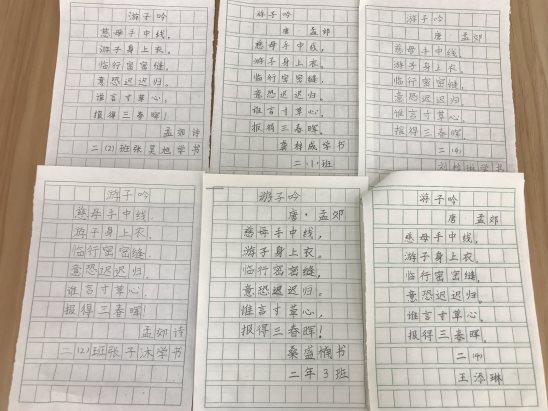 游子吟
慈母手中线，
游子身上衣。
临行密密缝，
意恐迟迟归。
谁言寸草心，
报得三春晖。
孟郊诗
二(2)班张昊旭学书
游子吟
唐·孟郊
慈母手中线，
游子身上衣。
临行密密缝，
意恐迟迟归。
谁言寸草心，
报得三春晖。
龚梓成学书
二(1)班
游子吟
唐 孟郊
慈母手中线，
游子身上衣。
临行密密缝，
意恐迟迟归。
谁言寸草心，
报得三春晖。
学书
游子吟
慈母手中线，
游子身上衣。
临行密密缝，
意恐迟迟归。
谁言寸草心，
报得三春晖！
孟郊诗
二(2)班张子沐学书
游子吟
唐·孟郊
慈母手中线，
游子身上衣。
临行密密缝，
意恐迟迟归。
谁言寸草心，
报得三春晖！
桑盛楠书
二年3班
游子吟
唐 孟郊
慈母手中线，
游子身上衣。
临行密密缝，
意恐迟迟归。
谁言寸草心，
报得三春晖。
二(4)
王添琳